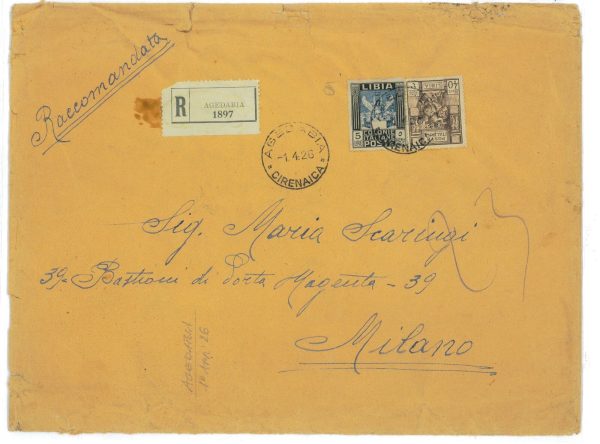 Raccomandata
R
AGEDABIA
1897
AGEDABIA
-1.4.26
CIRENAICA
LIBIA
5
COLONIE
ITALIANE
POSTE
CIRENAICA
Sig. Maria Scaringi
39. Bastioni di Porta Magenta - 39
Milano
AGEDABIA
26